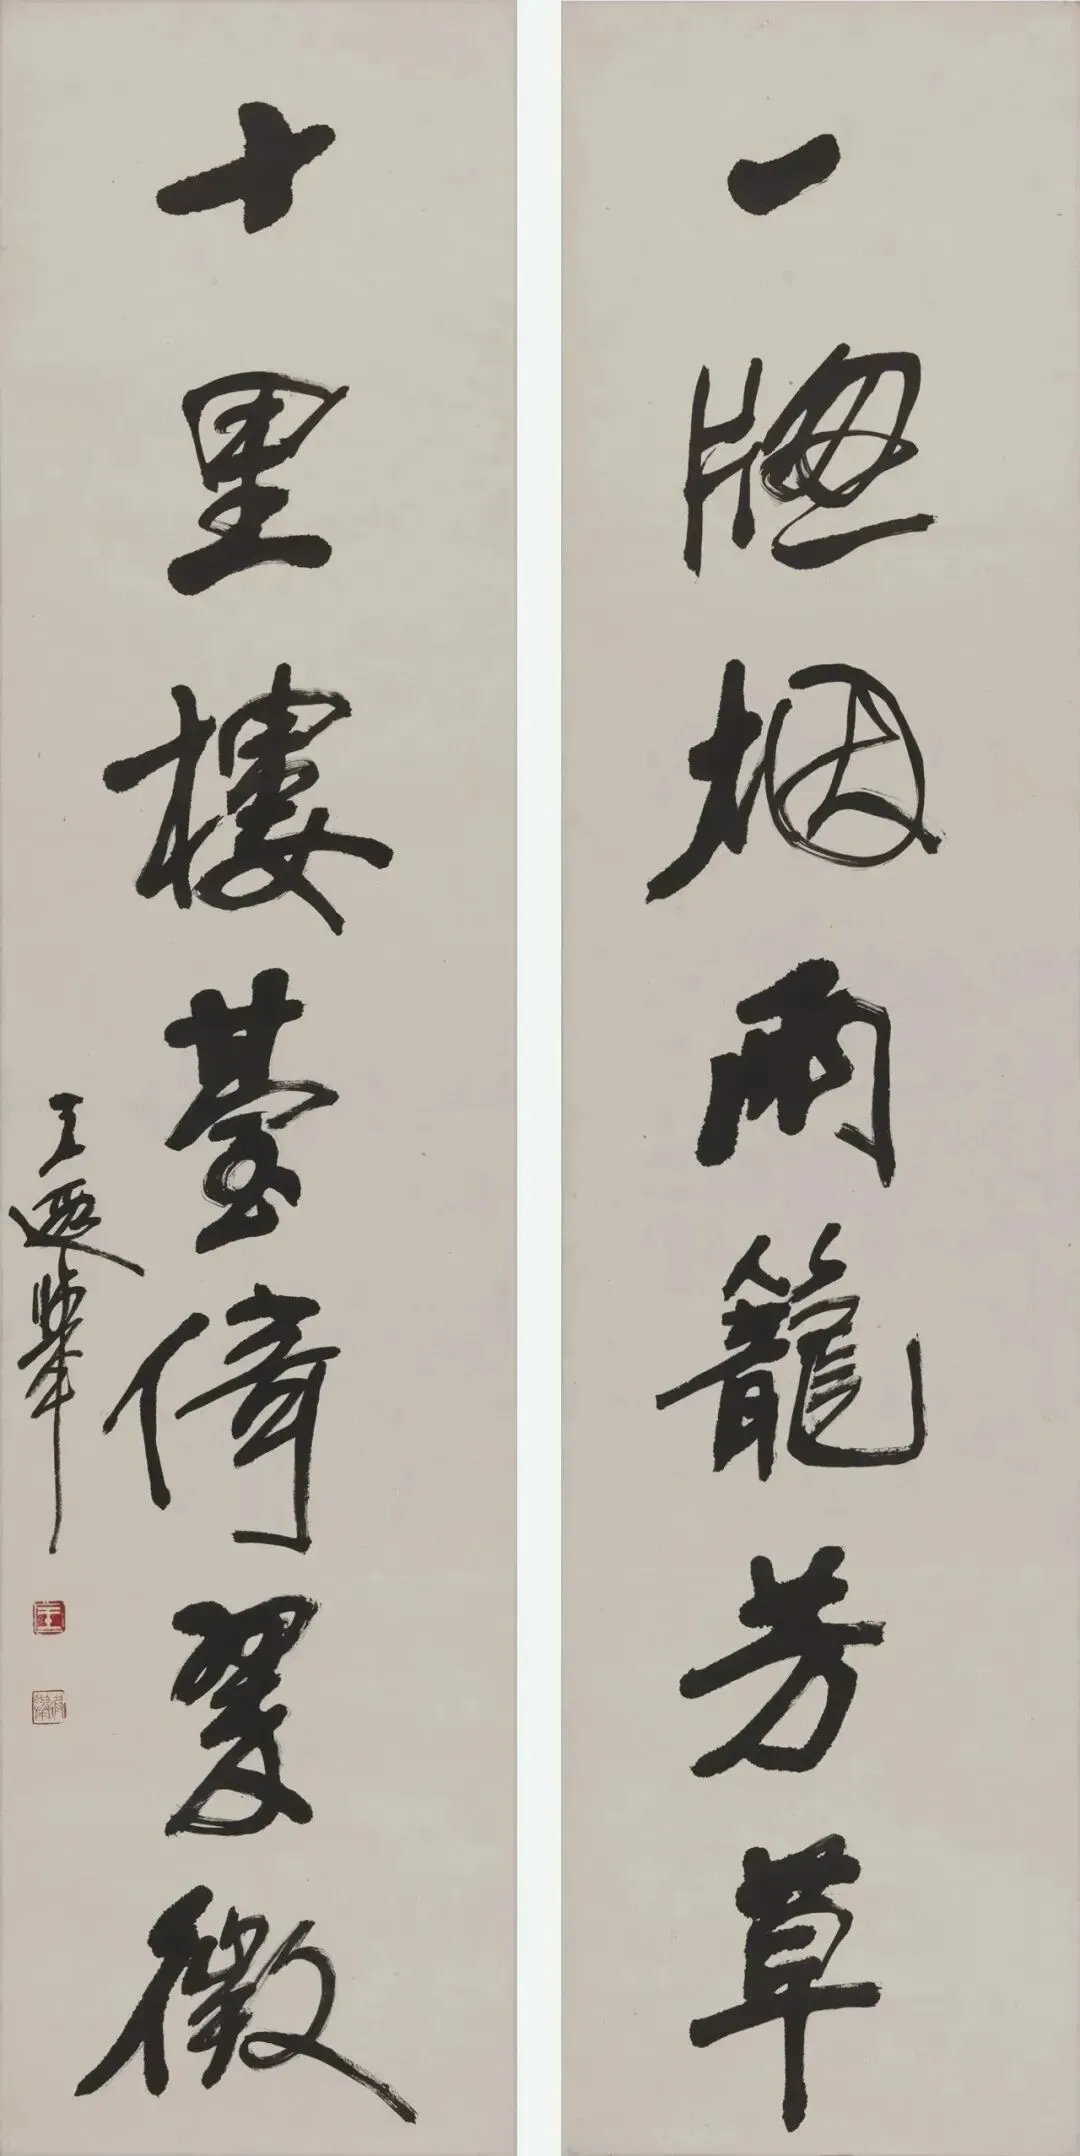 一牕烟雨籠芳草
十里樓臺倚翠微
王遐舉
王
遐舉